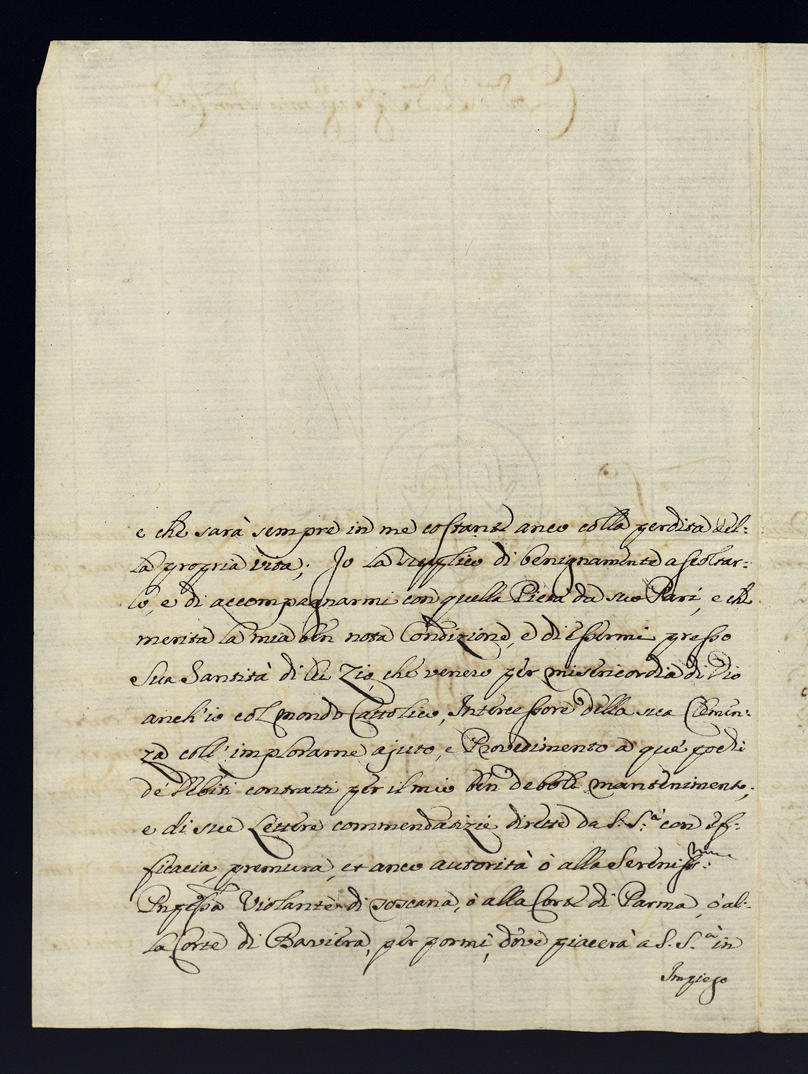 e che sarà sempre in me costante anco colla perdita del:
la propria vita; Io la supplico di benignamente ascoltar:
lo, e di accompagnarmi con quella Pietà da suo Pari, e che
merita la mia ben nota Condizione, e di essermi presso
Sua Santità di lei Zio, che venero per misericordia di Dio
anch'io col mondo Cattolico, Intercessore della sua Clemen:
za coll'implorarne ajuto, e Provedimento a que' pochi
de' Debiti contratti per il mio ben debole mantenimento;
e di sue Lettere commendatizie dirette da S. S.à con ef:
ficacia, premura, et anco autorità ò alla Sereniss:ma
Pnpessa Violante di Toscana, ò alla Corte di Parma, ò al:
la Corte di Baviera, per pormi, dove piacerà a S. S.à in
Impiego